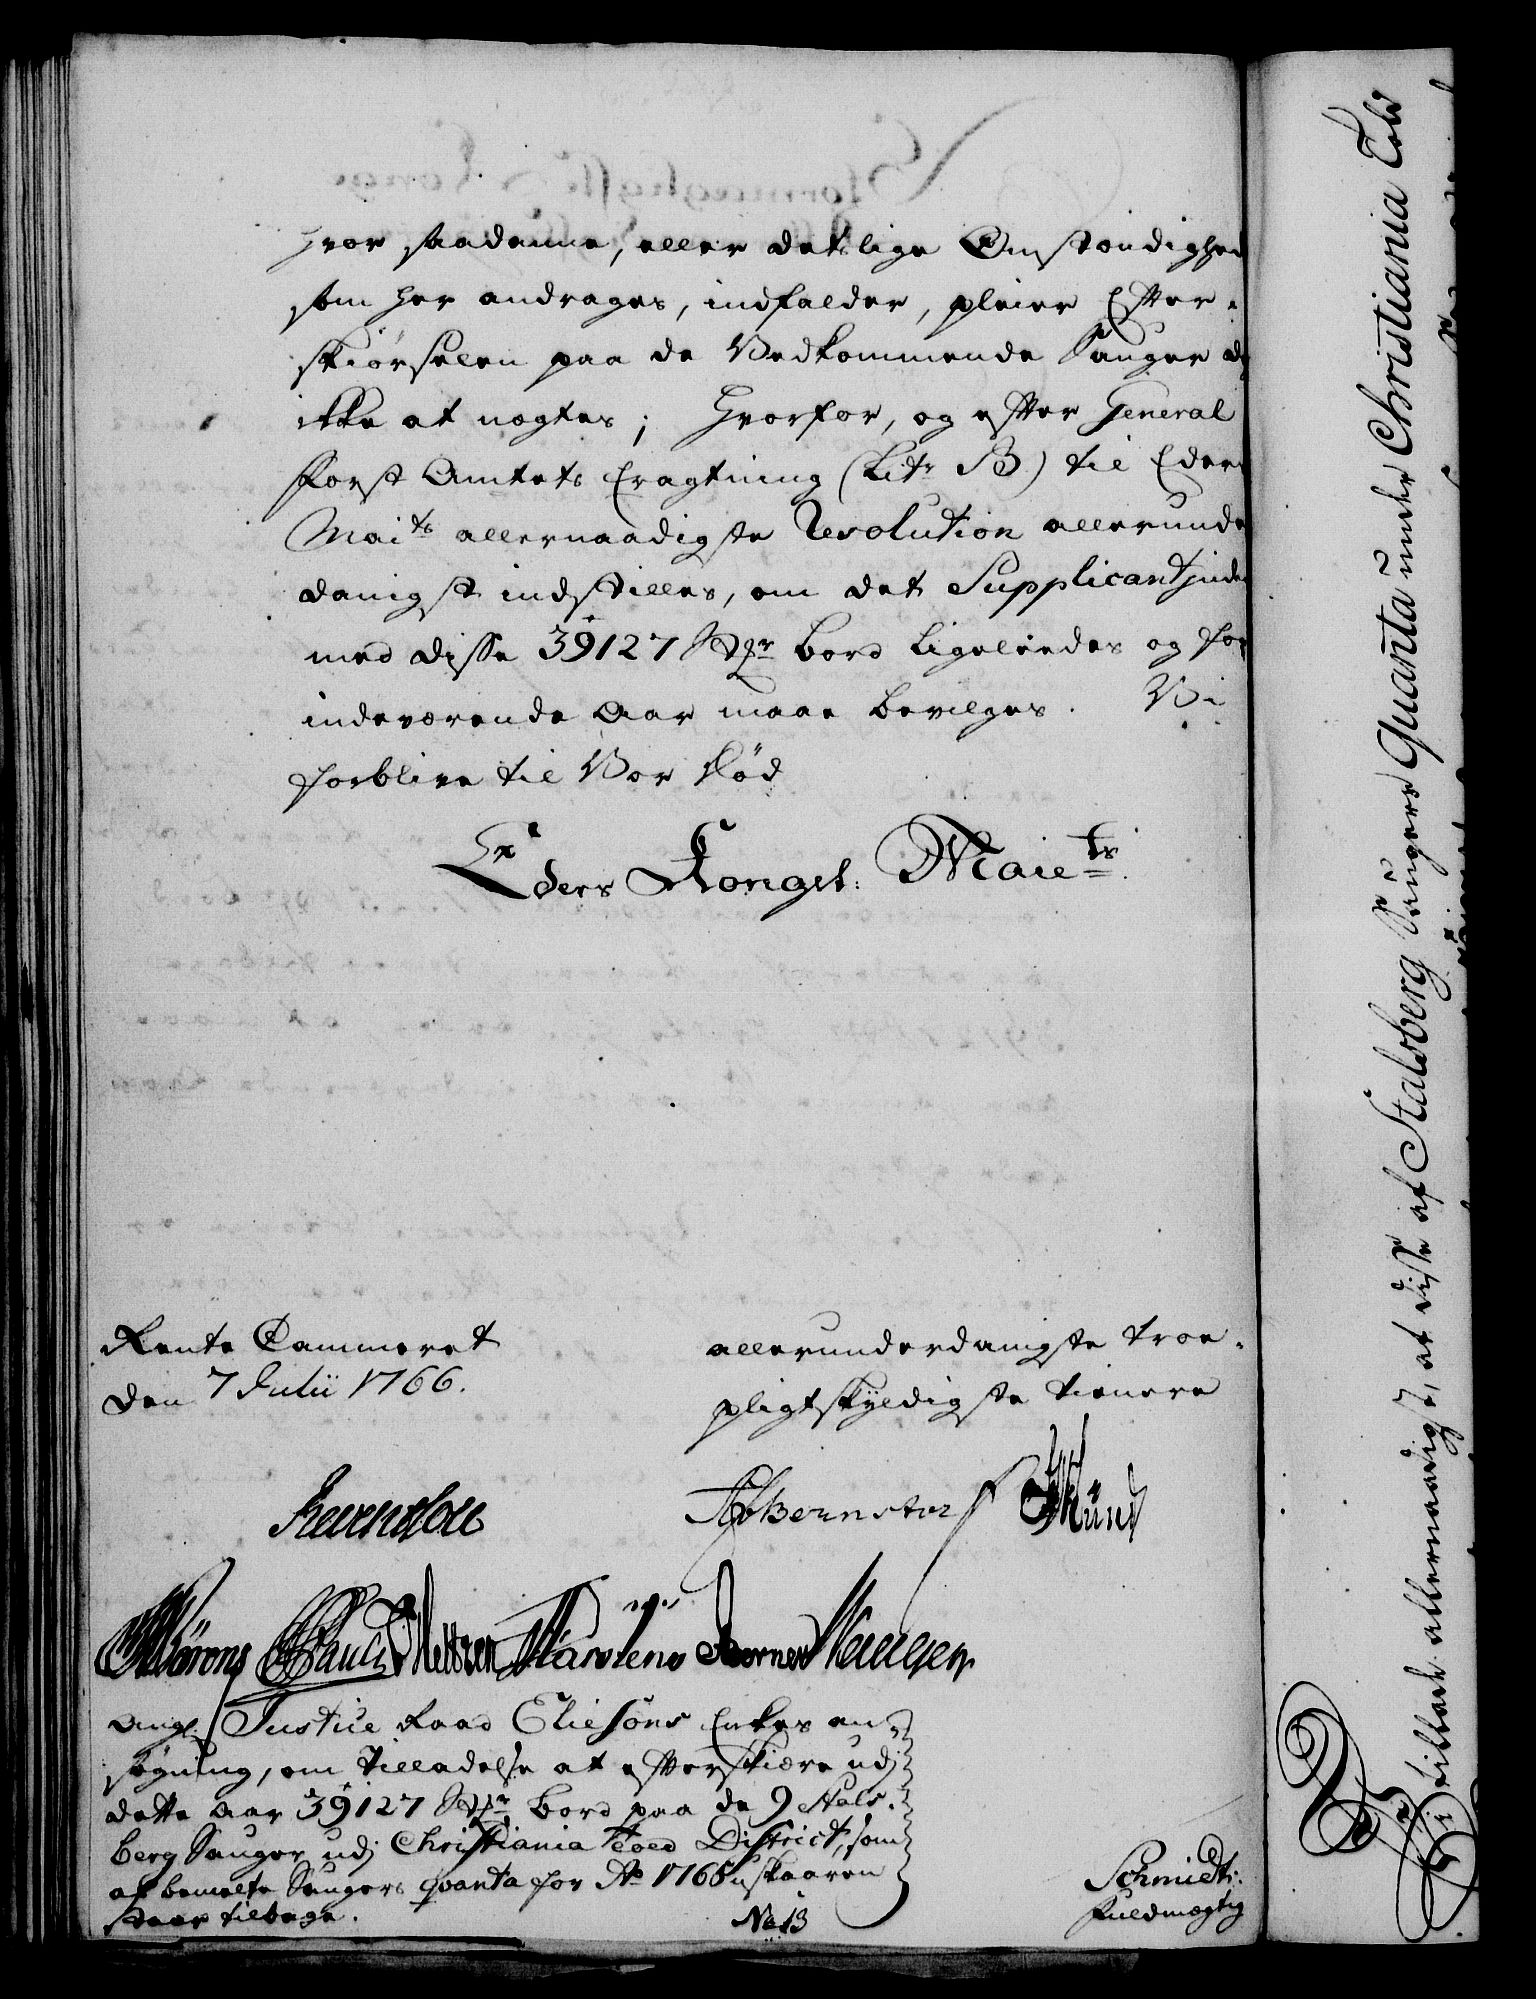 hvor saadanne, eller deslige Omstændighed
som her andrages, indfalder, pleier Efter-
skiørselen paa de Vedkommende Sauger
ikke at nægtes; Hvorfor, og efter General
Forst Amtets Eragtning (Litr B) til Eders
Maits allernaadigste Resolution allerunder
danigst indstilles, om det Supplicantinden
med disse 39127 bord ligeleedes og for
indeværende Aar maae bevilges. Vi
forblive til Vor Død
Eders Kongel: Maiets
Rente Cammeret
den 7 Julii 1766.
allerunderdanigste troe-
pligtskyldigste tienere
Reventlou
Bernstorff
Angl. Justice Raad Eliesøns Enkes an-
søgning, om Tilladelse at efterskiære udj
dette Aar 39127 bord paa de 9 Stals-
berg Sauger udj Christiania Toed District, som
af bemelte Saugers qvanta for Ao 1765 uskaaren
staar tilbage.
No 13
Schmidt:
fuldmægtig
Vi allernaadigst, at disse af Stalsberg Saugers Quanta under Christiania Told